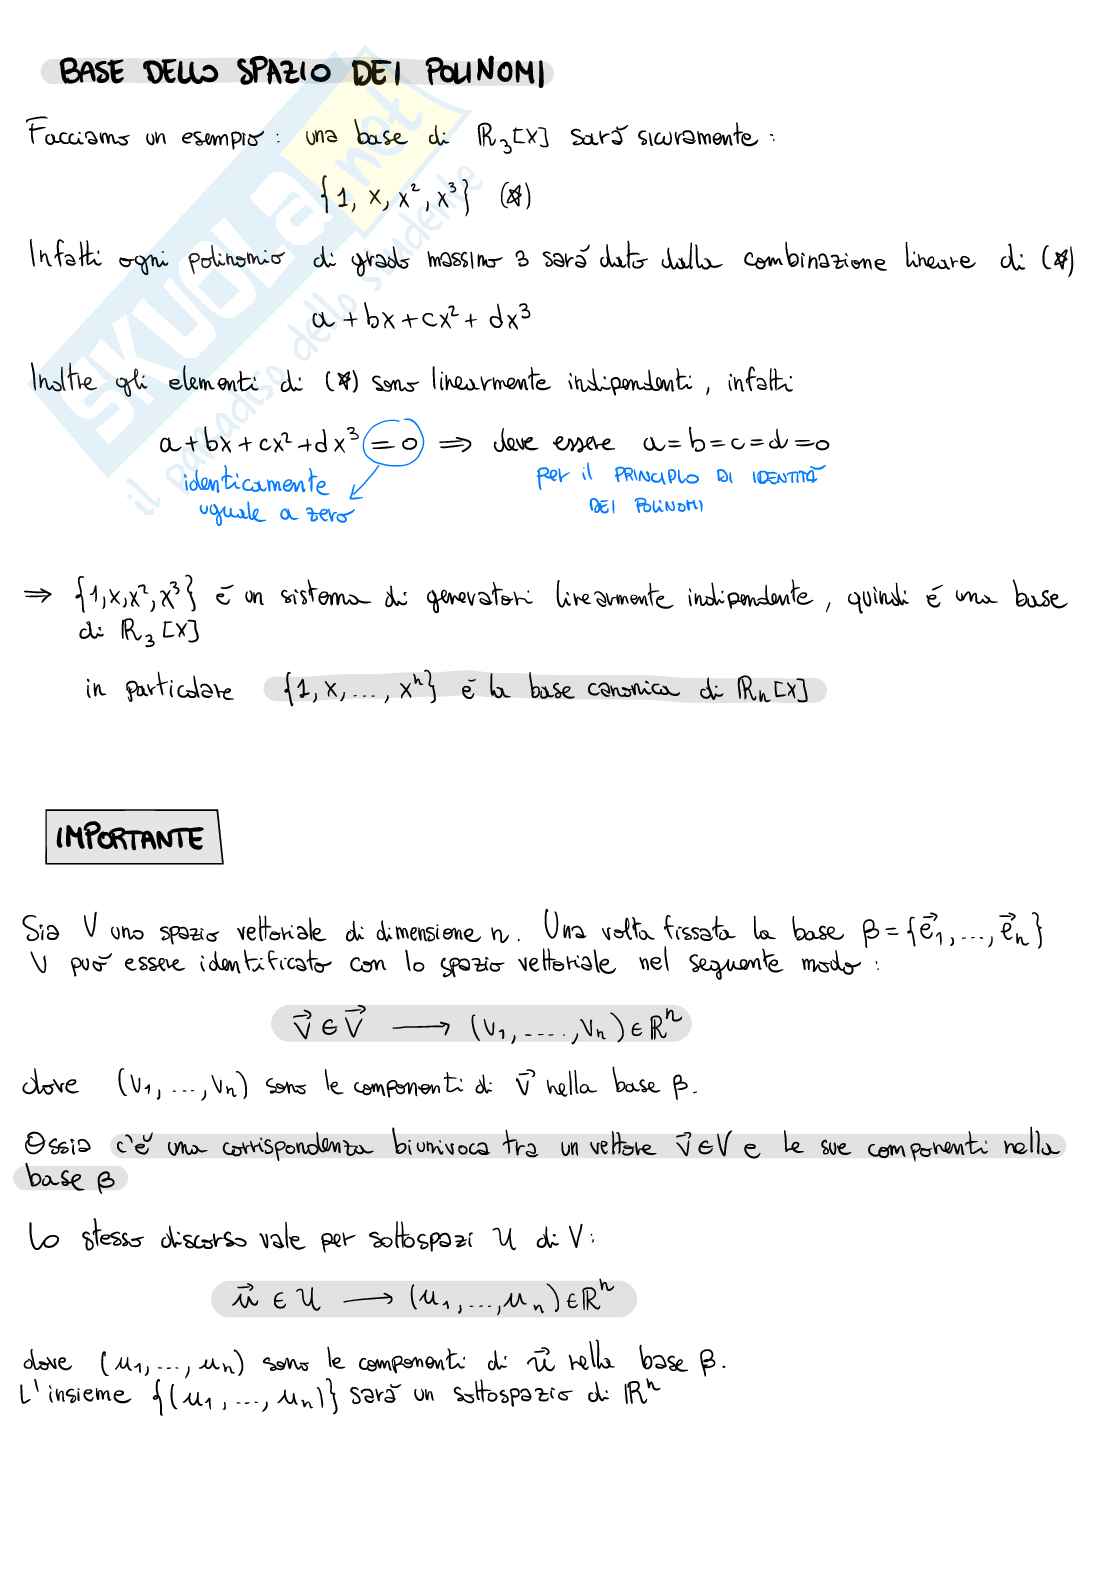 BASE DELLO SPAZIO DEI POLINOMI
Facciamo un esempio : una base di ℝ₃[X] sarà sicuramente :
{1, x, x², x³} (☆)
Infatti ogni polinomio di grado massimo 3 sarà dato dalla combinazione lineare di (☆)
a + bx + cx² + dx³
Inoltre gli elementi di (☆) sono linearmente indipendenti, infatti
a + bx + cx² + dx³ = 0 ⇒ deve essere a = b = c = d = 0
identicamente
uguale a zero
per il PRINCIPIO DI IDENTITÀ
DEI POLINOMI
⇒ {1, x, x², x³} è un sistema di generatori linearmente indipendente, quindi è una base
di ℝ₃[X]
in particolare {1, x, ..., xⁿ} è la base canonica di ℝₙ[X]
IMPORTANTE
Sia V uno spazio vettoriale di dimensione n. Una volta fissata la base β = {e⃗₁, ..., e⃗ₙ}
V può essere identificato con lo spazio vettoriale nel seguente modo :
v⃗ ∈ V⃗ ⟶ (v₁, ....., vₙ) ∈ ℝⁿ
dove (v₁, ..., vₙ) sono le componenti di v⃗ nella base β.
Ossia c'è una corrispondenza biunivoca tra un vettore v⃗ ∈ V e le sue componenti nella
base β
Lo stesso discorso vale per sottospazi U di V:
u⃗ ∈ U ⟶ (u₁, ..., uₙ) ∈ ℝⁿ
dove (u₁, ..., uₙ) sono le componenti di u⃗ nella base β.
L'insieme {(u₁, ..., uₙ)} sarà un sottospazio di ℝⁿ
SKUOLA.net
il paradiso dello studente